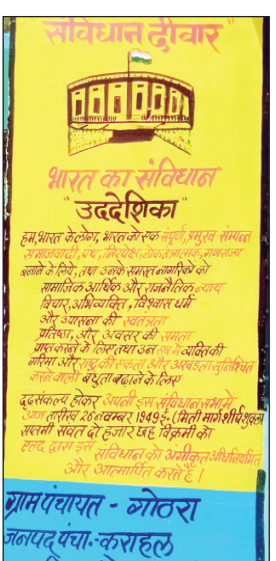 संविधान दीवार
भारत का संविधान
"उददेशिका"
हम, भारत के लोग, भारत को एक संपूर्ण, प्रमुख सम्पन्न
समाजवादी, पंथ, निरपेक्ष, लोकतंत्रात्मक, गणराज्य
बनाने के लिये, तथा उनके समस्त नागरिकों को
सामाजिक आर्थिक और राजनैतिक न्याय
विचार, अभिव्यक्ति, विश्वास धर्म
और उपासना की स्वतंत्रता
प्रतिष्ठा, और अवसर की समता
प्राप्त करने के लिए तथा उन सब में व्यक्ति की
गरिमा और राष्ट्र की एकता और अखंडता सुनिश्चित
करने वाली बंधुता बढ़ाने के लिए
दृढ़ संकल्प होकर अपनी इस संविधान सभा में
आज तारीख 26 नवम्बर 1949 ई. (मिती मार्गशीर्ष शुक्ला
सप्तमी संवत दो हजार छह विक्रमी को
एतद द्वारा इस संविधान को अंगीकृत अधिनियमित
और आत्मार्पित करते है।
ग्राम पंचायत - गोठरा
जनपद पंचा. - कराहल